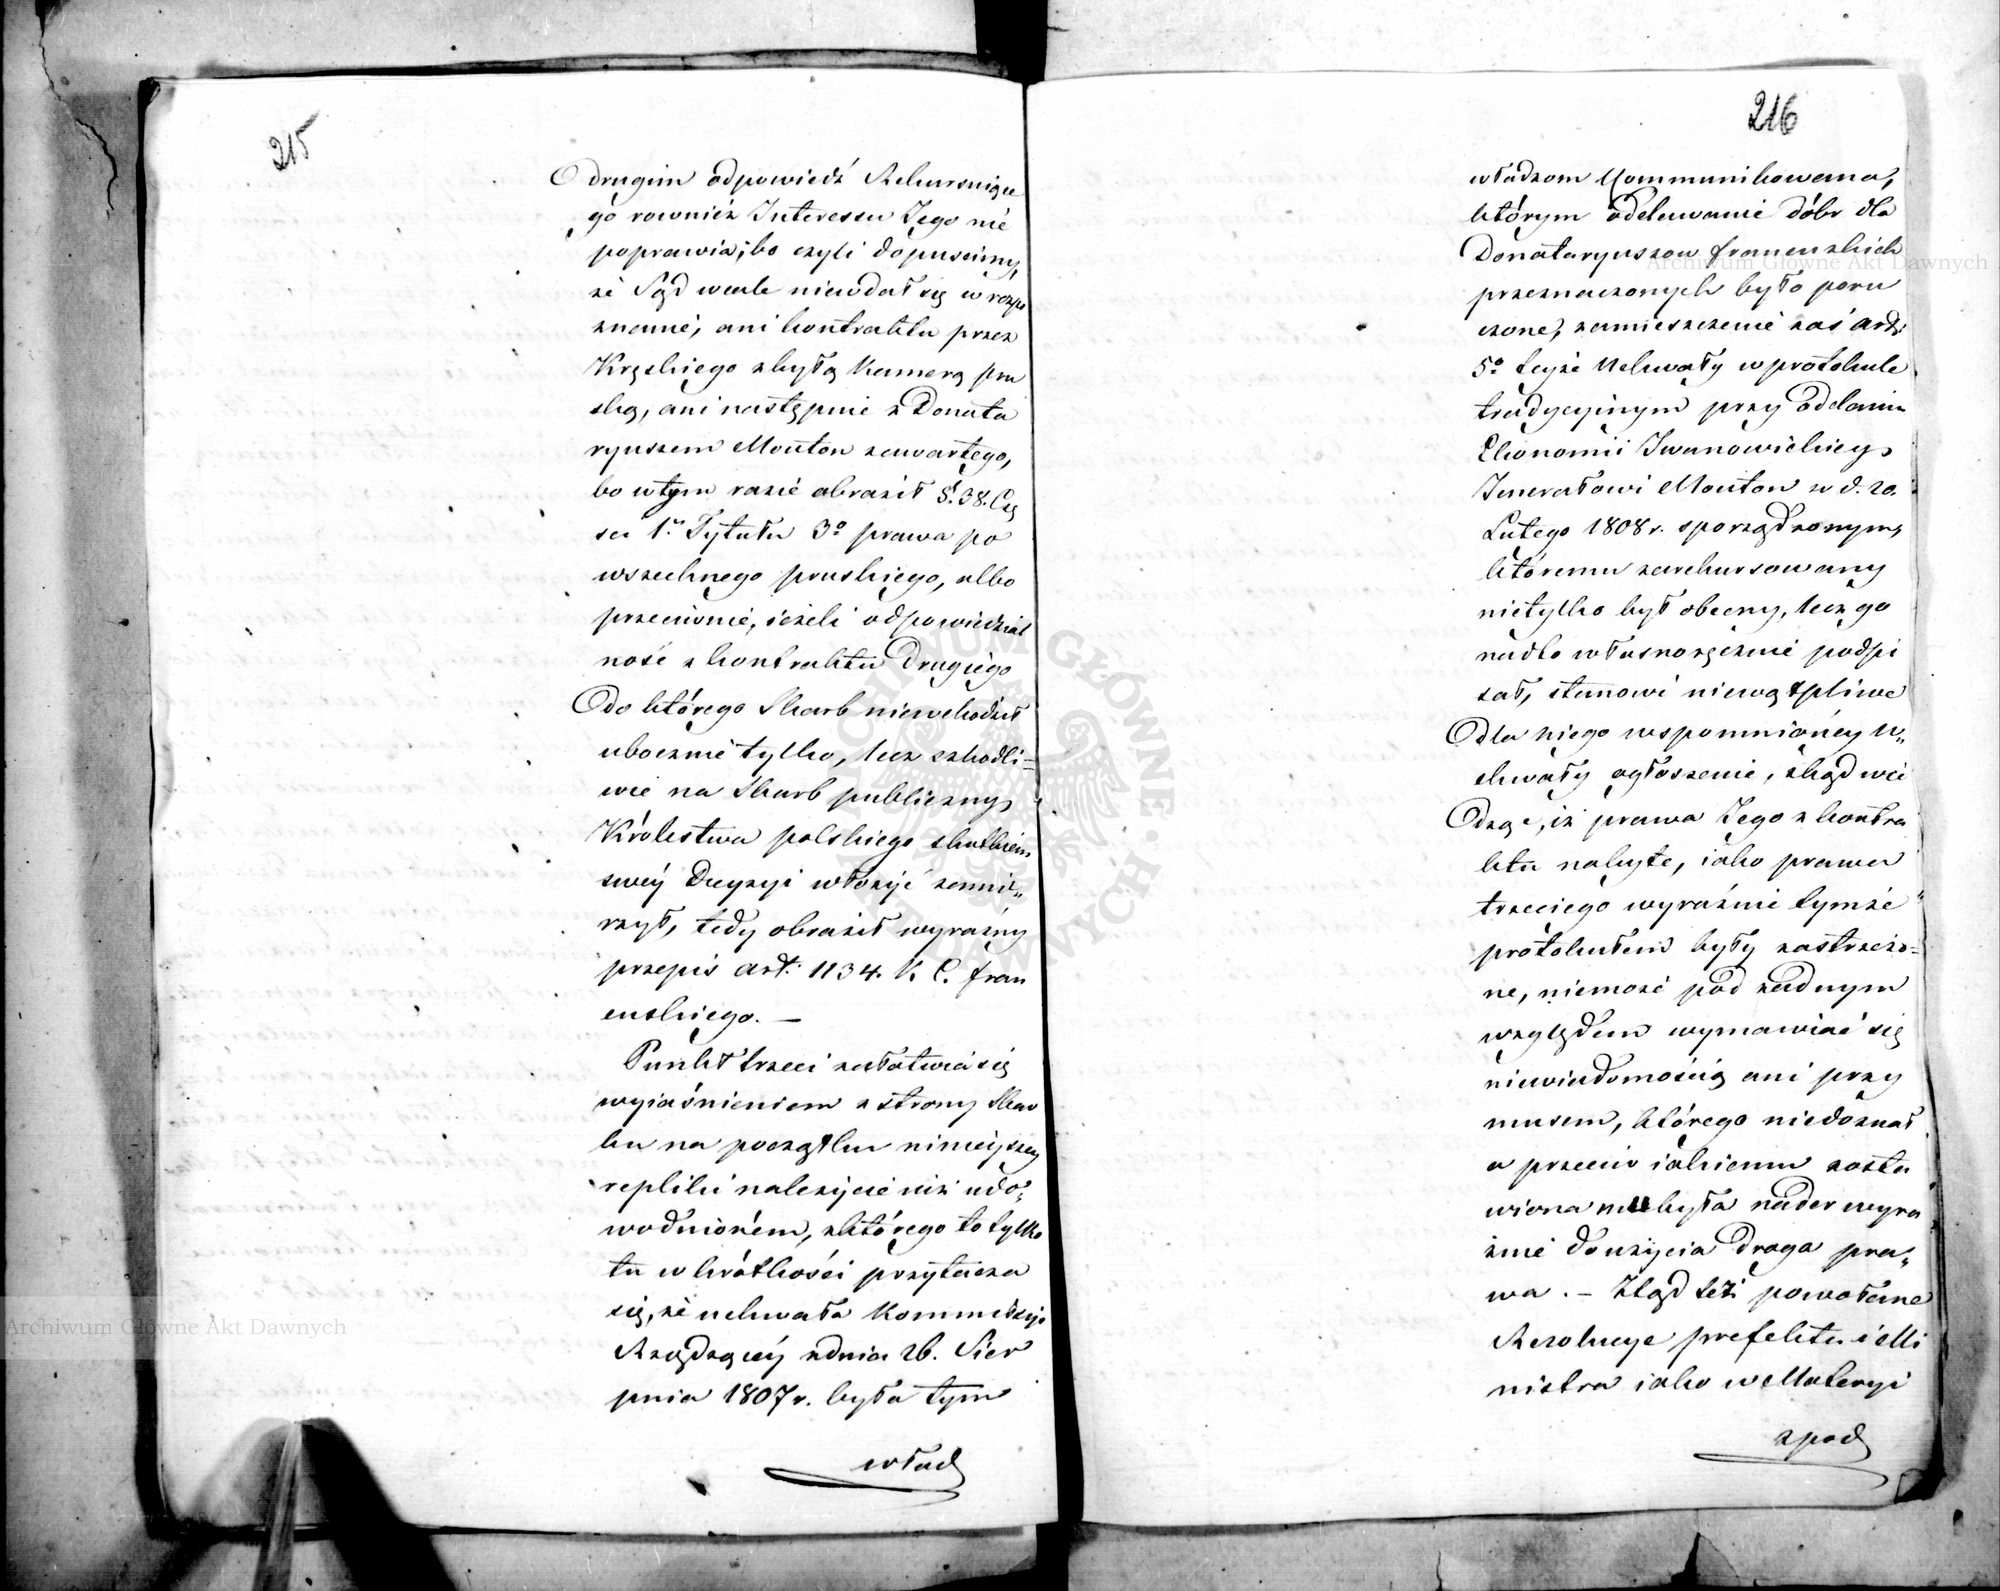 215
drugim odpowiedź Rekursuiące
go rownież Interessu Jego nie
poprawia; bo czyli dopuscimy,
że Sąd wcale niewdał się w rozpo
znanie, ani kontraktu przez
Kręskiego z byłą Kamerą pru
ską, ani następnie z Donata
ryuszem Mouton zawartego,
bo w tym razie obraził §. 38. Czę
sci 1. Tytułu 3º prawa po
wszechnego pruskiego, albo
przeciwnie, ieżeli odpowiedzial
ność z kontraktu drugiego
do którego Skarb niewchodził
ubocznie tylko, lecz szkodli=
wie na Skarb publiczny
Królestwa polskiego skutkiem
swéy Decyzyi włożyć zamie„
rzył, tedy obraził wyraźny
przepis art: 1134. K. C. fran
cuskiego. —
Punkt trzeci załatwia się
wyiaśnieniem z strony Skar
bu na początku ninieyszey
repliki należycie iuż udo„
wodnioném, z którego to tylko
tu w krótkości przytacza
się, że uchwała Kommissyi
Rządzącéy z dnia 26. Sier
pnia 1807 r. była tym
władz
216
władzom kommunikowana,
którym oddawanie dóbr dla
Donataryuszow francuzkich
przeznaczonych było poru
czone, zamieszczenie zaś art:
5º teyże Uchwały w protokule
tradycyinym przy oddaniu
Ekonomii Iwanowickiey
Jenerałowi Mouton w d. 20.
Lutego 1808 r. sporządzonym,
któremu zarekursowany
nietylko był obecny, lecz go
nadto własnoręcznie podpi
sał, stanowi niewątpliwe
dla niego wspomnionéy U„
chwały ogłoszenie, zkąd wie
dząc, iż prawa Jego z kontra
ktu nabyte, iako prawa
trzeciego wyraźnie tymże
protokułem były zastrzeżo=
ne, niemoże pod żadnym
względem wymawiać się
niewiadomością ani przy
musem, którego niedoznał
a przeciw iakiemu zosta
wiona mu była nader wyra
źnie do użycia droga pra„
wa. — Ztąd też powołane
Rezolucye prefekta i Mi
nistra iako w Materyi
z pod
Archiwum Główne Akt Dawnych
Archiwum Główne Akt Dawnych
ARCHIWUM GŁÓWNE AKT DAWNYCH